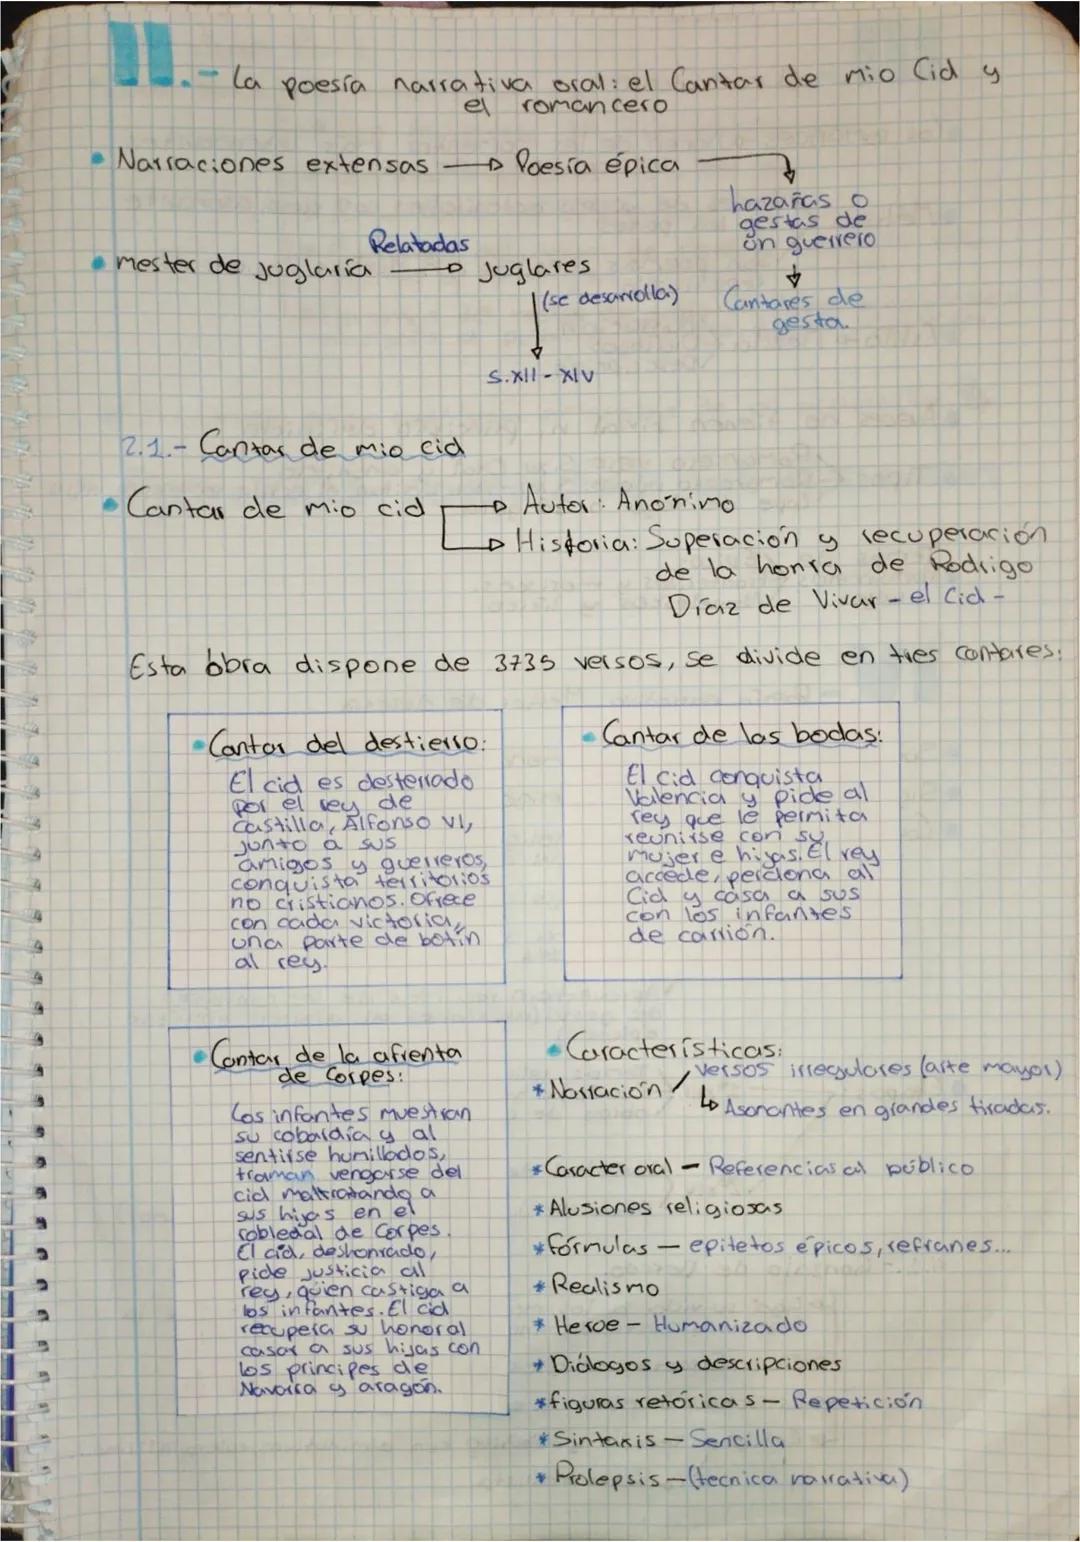 II.- La poesía narrativa oral: el Cantar de mio Cid y
el romancero
• Narraciones extensas → Poesía épica →
hazañas o
gestas de
un guerrero
↓
Cantares de
gesta.
• mester de juglaría Relatadas → juglares
(se desarrolla)
↓
s.XII - XIV
2.1.- Cantar de mio cid
• Cantar de mio cid → Autor: Anónimo
→ Historia: Superación y recuperación
de la honra de Rodrigo
Díaz de Vivar - el Cid -
Esta obra dispone de 3735 versos, se divide en tres cantares:
• Cantar del destierro:
El cid es desterrado
por el rey de
castilla, Alfonso VI,
junto a sus
amigos y guerreros,
conquista territorios
no cristianos. Ofrece
con cada victoria,
una parte de botín
al rey.
• Cantar de las bodas:
El cid conquista
Valencia y pide al
rey que le permita
reunirse con su
mujer e hijas. El rey
accede, perdona al
Cid y casa a sus
con los infantes
de carrión.
• Cantar de la afrenta
de Corpes:
Los infantes muestran
su cobardía y al
sentirse humillados,
traman vengarse del
cid maltratando a
sus hijas en el
robledal de Corpes.
El cid, deshonrado,
pide justicia al
rey, quien castiga a
los infantes. El cid
recupera su honor al
casar a sus hijas con
los principes de
Navarra y aragón.
• Características:
* Narración / versos irregulares (arte mayor)
↳ Asonantes en grandes tiradas.
* Caracter oral - Referencias al público
* Alusiones religiosas
* Fórmulas - epitetos épicos, refranes...
* Realismo
* Heroe - Humanizado
* Diálogos y descripciones
* figuras retóricas - Repetición
* Sintaxis - Sencilla
* Prolepsis - (tecnica narrativa)